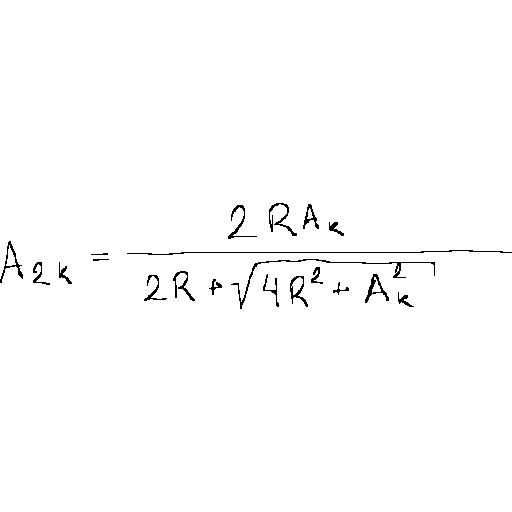 A_{2k} = \frac{2RA_k}{2R + \sqrt{4R^2 + A_k^2}}